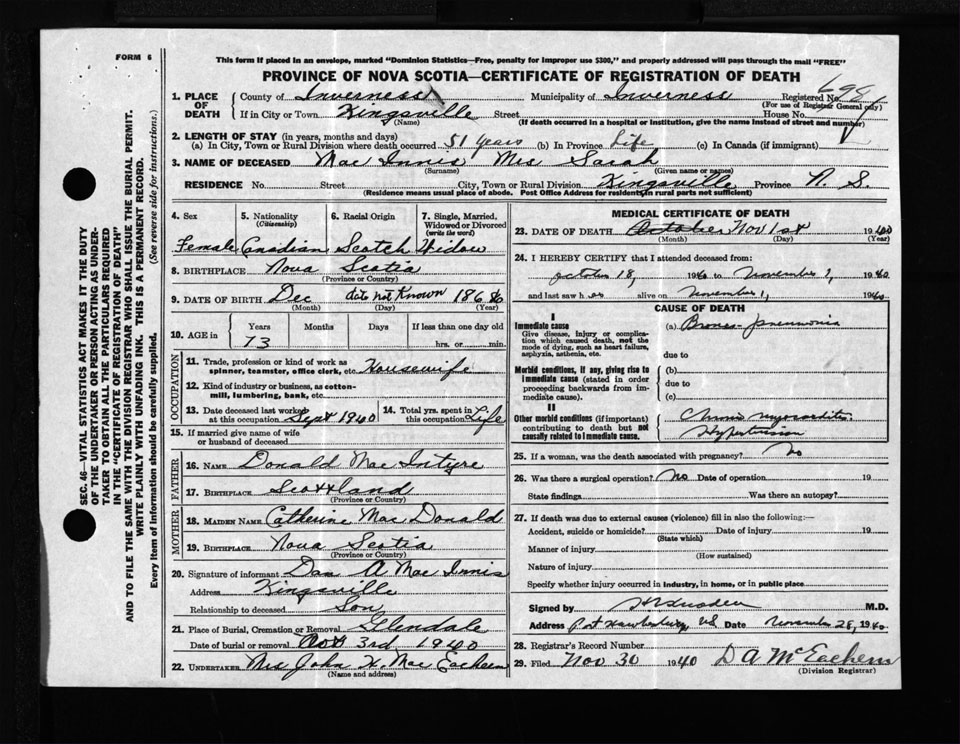 FORM 6
This form if placed in an envelope, marked "Dominion Statistics—Free, penalty for improper use $300," and properly addressed will pass through the mail "FREE"
PROVINCE OF NOVA SCOTIA—CERTIFICATE OF REGISTRATION OF DEATH
SEC. 46—VITAL STATISTICS ACT MAKES IT THE DUTY
OF THE UNDERTAKER OR PERSON ACTING AS UNDER-
TAKER TO OBTAIN ALL THE PARTICULARS REQUIRED
IN THE "CERTIFICATE OF REGISTRATION OF DEATH"
AND TO FILE THE SAME WITH THE DIVISION REGISTRAR WHO SHALL ISSUE THE BURIAL PERMIT.
WRITE PLAINLY WITH UNFADING INK. THIS IS A PERMANENT RECORD.
Every item of information should be carefully supplied. (See reverse side for instructions.)
1. PLACE OF DEATH County of Inverness Municipality of Inverness Registered No. 698
(For use of Registrar General only)
If in City or Town Kingsville Street House No.
(Name) (If death occurred in a hospital or institution, give the name instead of street and number)
2. LENGTH OF STAY (in years, months and days)
(a) In City, Town or Rural Division where death occurred 51 years (b) In Province Life (c) In Canada (if immigrant)
3. NAME OF DECEASED Mac Innis Mrs Sarah
(Surname) (Given name or names)
RESIDENCE No. Street City, Town or Rural Division Kingsville Province N. S.
(Residence means usual place of abode. Post Office Address for residents in rural parts not sufficient)
4. Sex 5. Nationality (Citizenship) 6. Racial Origin 7. Single, Married, Widowed or Divorced (write the word)
Female Canadian Scotch Widow
8. BIRTHPLACE Nova Scotia
(Province or Country)
9. DATE OF BIRTH Dec date not Known 186
(Month) (Day) (Year)
10. AGE in Years Months Days If less than one day old
73 hrs. or min.
OCCUPATION
11. Trade, profession or kind of work as
spinner, teamster, office clerk, etc. Housewife
12. Kind of industry or business, as cotton-
mill, lumbering, bank, etc.
13. Date deceased last worked at this occupation Sept 1940 14. Total yrs. spent in this occupation Life
15. If married give name of wife
or husband of deceased
FATHER
16. NAME Donald Mac Intyre
17. BIRTHPLACE Scottland
(Province or Country)
MOTHER
18. MAIDEN NAME Catherine Mac Donald
19. BIRTHPLACE Nova Scotia
(Province or Country)
20. Signature of informant Dan A Mac Innis
Address Kingsville
Relationship to deceased Son
21. Place of Burial, Cremation or Removal Glendale
Date of burial or removal 3rd 1940
22. UNDERTAKER Mrs John H. Mac Eachern
(Name and address)
MEDICAL CERTIFICATE OF DEATH
23. DATE OF DEATH October Nov 1st 1940
(Month) (Day) (Year)
24. I HEREBY CERTIFY that I attended deceased from:
october 18, 1940 to November 1, 1940
and last saw h er alive on November 1, 1940
CAUSE OF DEATH
I
Immediate cause (a) Bronco-pneumonia
Give disease, injury or complica-
tion which caused death, not the
mode of dying, such as heart failure,
asphyxia, asthenia, etc.
due to
Morbid conditions, if any, giving rise to
immediate cause (stated in order
proceeding backwards from im-
mediate cause).
(b)
due to
(c)
II
Other morbid conditions (if important)
contributing to death but not
causally related to immediate cause.
Chronic myocarditis
Hypertension
25. If a woman, was the death associated with pregnancy? No
26. Was there a surgical operation? No Date of operation 19
State findings Was there an autopsy?
27. If death was due to external causes (violence) fill in also the following:—
Accident, suicide or homicide? Date of injury 19
(State which)
Manner of injury
(How sustained)
Nature of injury
Specify whether injury occurred in industry, in home, or in public place
Signed by M.D.
Address Port Hawkesbury, NS Date November 28, 1940
28. Registrar's Record Number
29. Filed Nov 30 1940 D A McEachern
(Division Registrar)